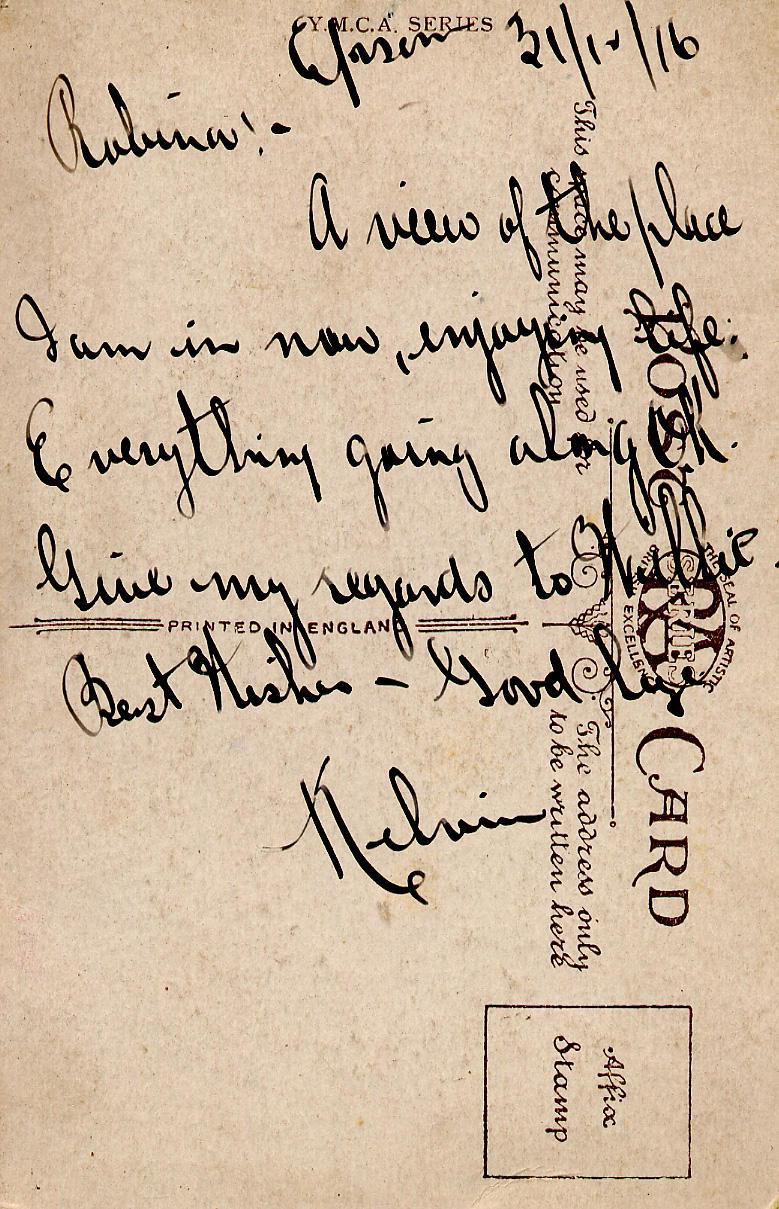 Y.M.C.A. SERIES
Epsom 31/10/16
Robina! -
A view of the place
I am in now, enjoying life.
Everything going along Ok.
Give my regards to Willie.
Best Wishes - Good
Kelvin
PRINTED IN ENGLAND
POST CARD
THE SEAL OF ARTISTIC EXCELLENCE
This space may be used for
communication
The address only
to be written here
Affix
Stamp